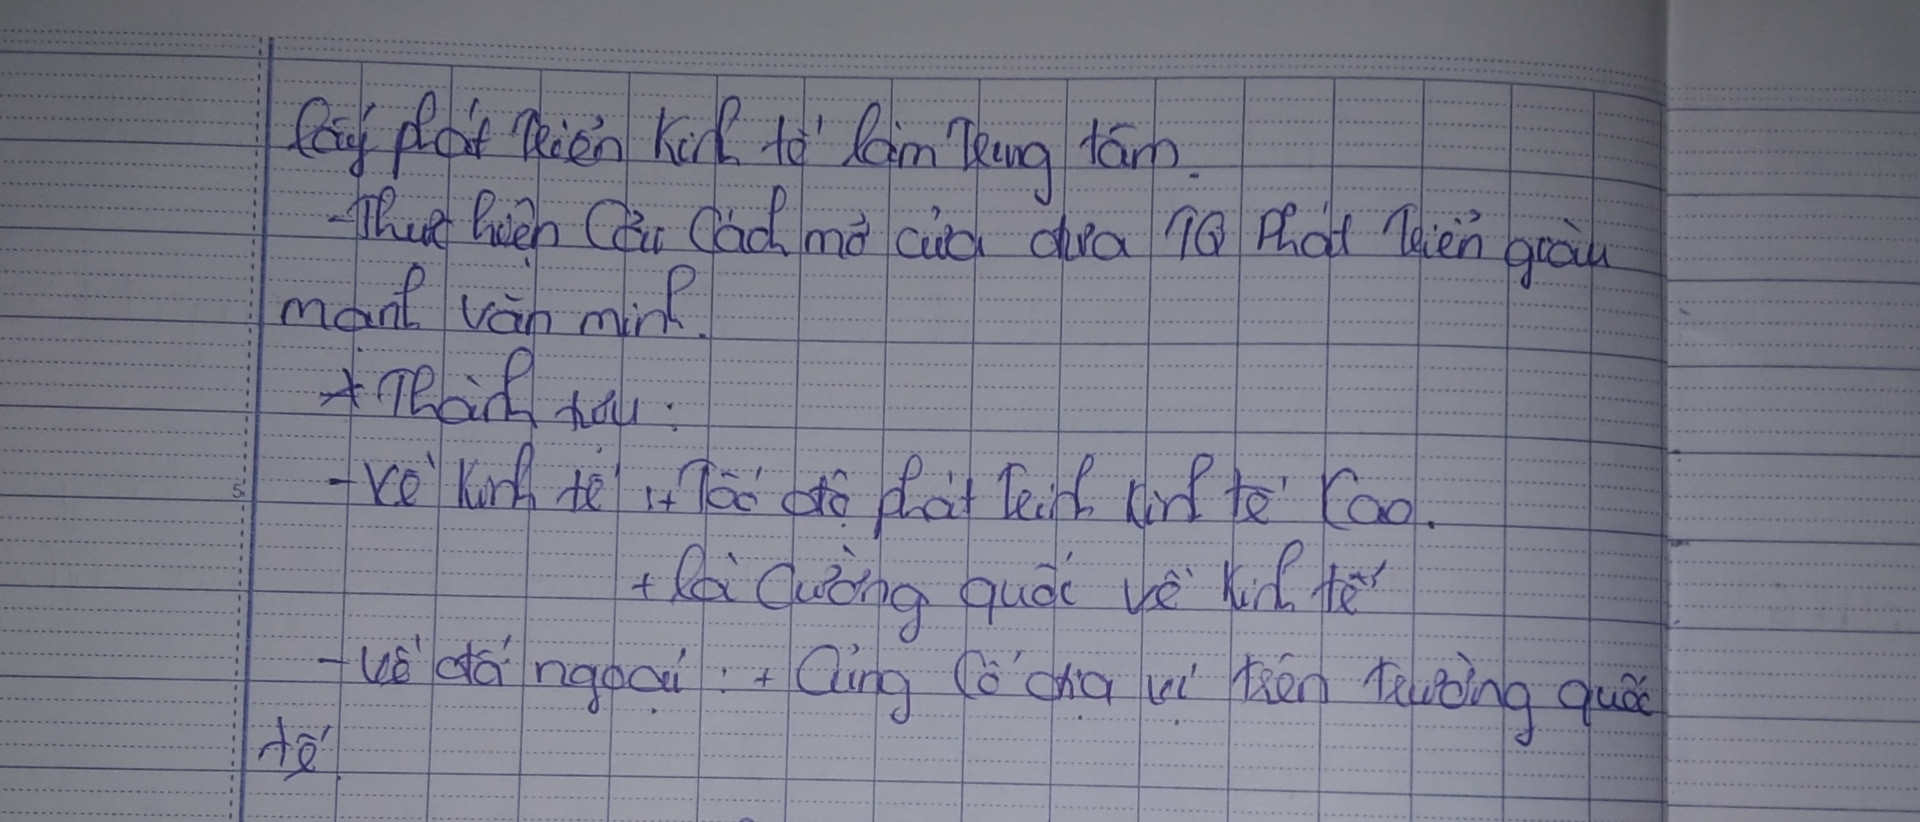 Lấy phát triển kinh tế làm trung tâm.
- Thực hiện cải cách mở cửa đưa TQ phát triển giàu
mạnh văn minh.
* Thành tựu:
- Về kinh tế: + Tốc độ phát trinh kinh tế cao.
+ Là cường quốc về kinh tế
- Về đố ngoại: + Củng cố địa vị trên trường quốc
tế